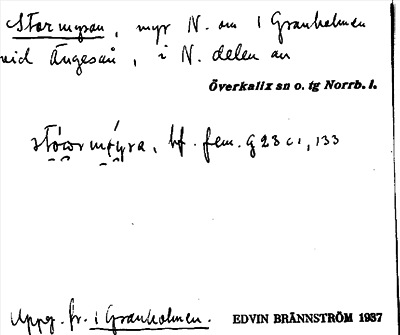 Stormyran, myr N. om 1 Granholmen
vid Ängesån, i N. delen av
Överkalix sn o. tg Norrb. l.
bf. fem. G 23 c 1, 133
Uppg. fr. 1 Granholmen. EDVIN BRÄNNSTRÖM 1937